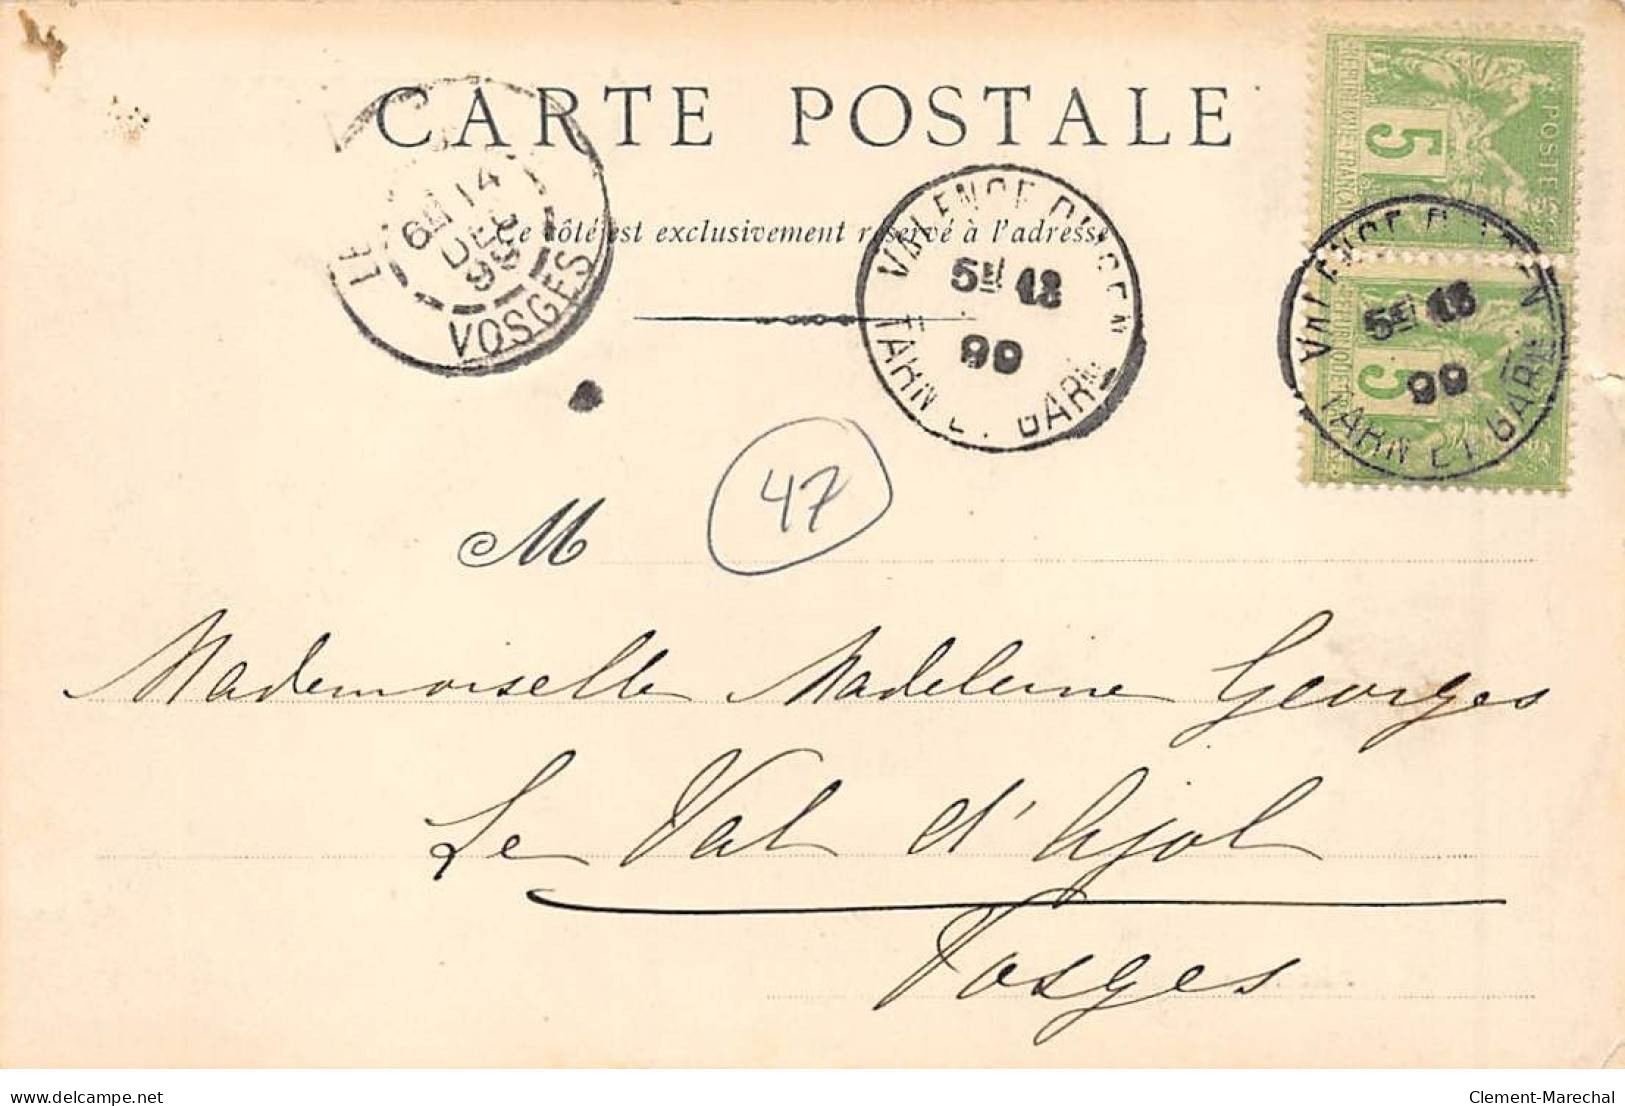 CARTE POSTALE
Ce côté est exclusivement réservé à l'adresse
POSTES
5
5
VALENCE D'AGEN
5E 13
99
TARN ET GARNE
VALENCE D'AGEN
5E 13
99
TARN ET GARNE
LE
6E 14
DEC
99
VOSGES
47
M
Mademoiselle Madeleine Georges
Le Val d'Ajol
Vosges
delcampe.net
Clement-Marechal